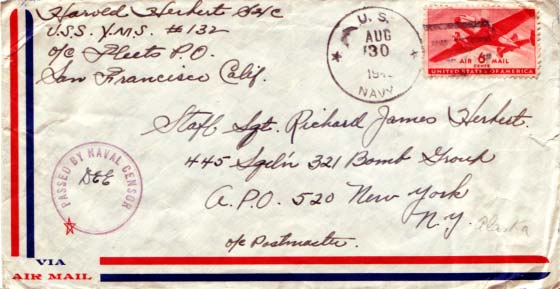 Harold Herbert S2/c
U.S.S. Y.M.S. #132
o/c Fleets P.O.
San Francisco Calif.
U. S.
AUG
30
NAVY
AIR 6¢ MAIL
CENTS
UNITED STATES OF AMERICA
Staff Sgt. Richard James Herbert.
445 Sqd'n 321 Bomb Group
A.P.O. 520 New York
N.Y.
o/c Postmaster.
PASSED BY NAVAL CENSOR
VIA
AIR MAIL